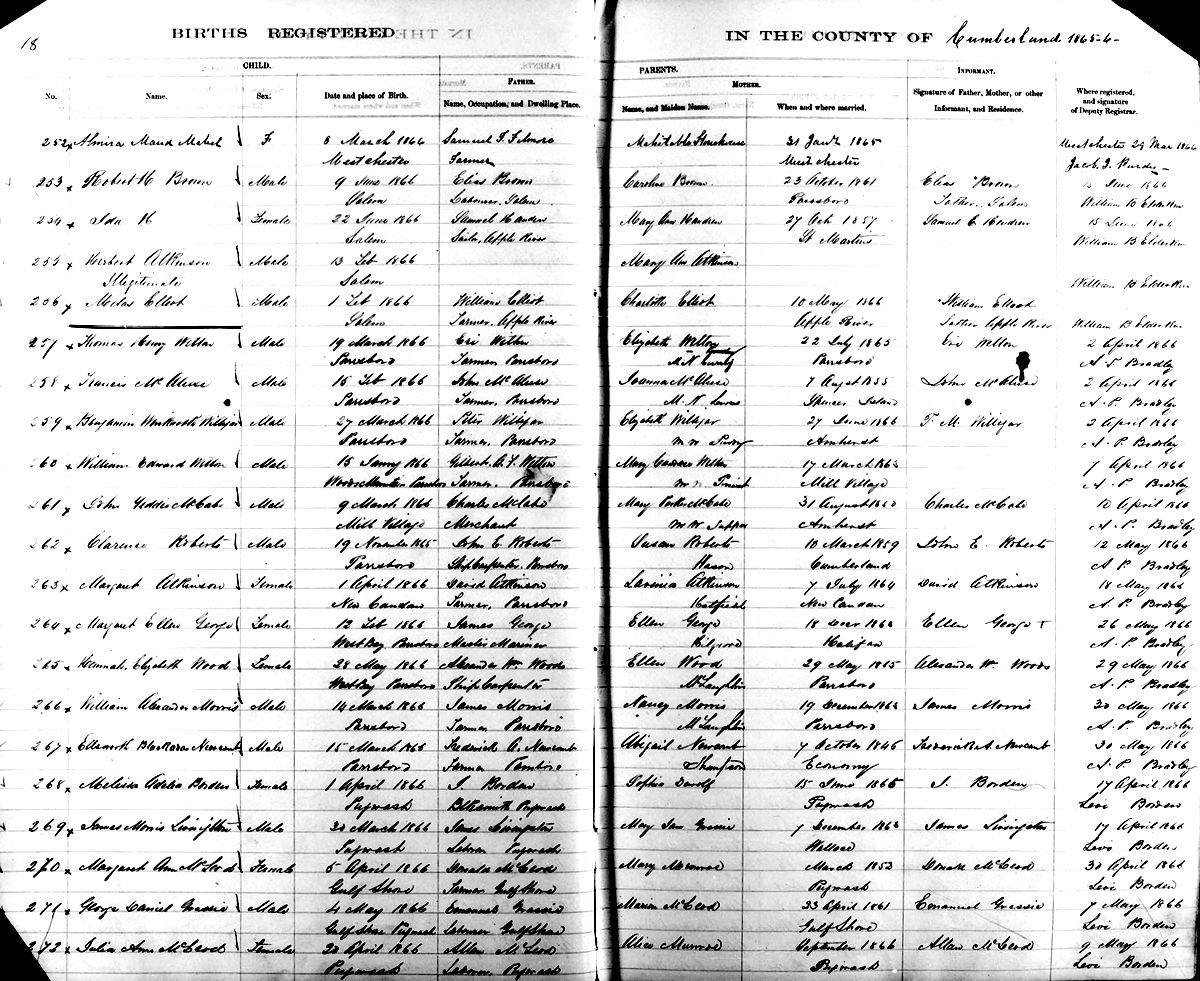 18
BIRTHS REGISTERED IN THE COUNTY OF Cumberland 1865-6-
CHILD. PARENTS. INFORMANT.
FATHER. MOTHER.
No. Name. Sex. Date and place of Birth. Name, Occupation, and Dwelling Place. Name, and Maiden Name. When and where married. Signature of Father, Mother, or other Informant, and Residence. Where registered, and signature of Deputy Registrar.
252 Almira Maud F 8 March 1866 Samuel F. Filmore Mehitable 31 Jany 1865 Westchester 29 Mar 1866
Westchester Farmer Westchester Jacob J. Purdy
253 Robert H Brown Male 9 June 1866 Elias Brown Caroline Brown 23 October 1861 Elias Brown 15 June 1866
Salem Labourer, Salem Parrsboro Father, Salem William B Elderkin
254 Ida H Female 22 June 1866 Samuel Mary Ann 27 Oct 1857 Samuel C 15 June 1866
Salem Sailor, Apple River St Martins William B Elderkin
255 Herbert Atkinson Male 13 Feb 1866 Mary Ann Atkinson
Illegitimate Salem William B Elderkin
256 Miles Elliot Male 1 Feb 1866 William Elliot Charlotte Elliot 10 May 1866 William Elliot
Salem Farmer, Apple River Apple River Father Apple River William B Elderkin
257 Thomas Henry Male 19 March 1866 Eri Elizabeth 22 July 1865 Eri 2 April 1866
Parrsboro Farmer Parrsboro Parrsboro A P Bradley
258 Francis Male 15 Feb 1866 John Joanna 7 Augst 1855 John 2 April 1866
Parrsboro Farmer, Parrsboro Spencers Island A. P. Bradley
259 Benjamin Male 27 March 1866 Peter Elizabeth 27 June 1866 2 April 1866
Parrsboro Farmer, Parrsboro Amherst A. P. Bradley
260 William Edward Male 15 1866 Gilbert A. F. Mary 17 March 7 April 1866
Farmer, Parrsboro Mill Village A. P. Bradley
261 John Geddes McCabe Male 9 March 1866 Charles McCabe Mary McCabe 31 August Charles McCabe 10 April 1866
Mill Village Merchant Tupper Amherst A. P. Bradley
262 Clarence Roberts Male 19 November 1865 John E. Roberts Susan Roberts 10 March 1859 John E. Roberts 12 May 1866
Parrsboro Ship Carpenter, Parrsboro Cumberland A P Bradley
263 Margaret Atkinson Female 1 April 1866 David Atkinson Lavinia Atkinson 7 July 1864 David Atkinson 18 May 1866
New Canaan Farmer, Parrsboro Hatfield New Canaan A. P. Bradley
264 Margaret Ellen George Female 12 Feb 1866 James George Ellen George 18 Decr Ellen George 26 May 1866
West Bay Parrsboro Master Mariner Kilgore Halifax A. P. Bradley
265 Hannah Elizabeth Wood Female 28 May 1866 Alexander Wm Woods Ellen Wood 29 May Alexander Wm Woods 29 May 1866
West Bay Parrsboro Ship Carpenter McLaughlin Parrsboro A. P. Bradley
266 William Alexander Morris Male 14 March 1866 James Morris Nancy Morris 19 December James Morris 30 May 1866
Parrsboro Farmer Parrsboro McLaughlin Parrsboro A. P. Bradley
267 Ellsworth Newcomb Male 15 March 1866 Frederick A. Newcomb Abigail Newcomb 7 October 1846 Frederick A. Newcomb 30 May 1866
Parrsboro Farmer Thompson Economy A. P. Bradley
268 Melissa Adelia Borden Female 1 April 1866 J. Borden Sophia 15 June 1865 J. Borden 17 April 1866
Pugwash Blksmith Pugwash Pugwash Levi Borden
269 James Morris Livingston Male 20 March 1866 James Livingston Mary Jane 7 December James Livingston 17 April 1866
Pugwash Laborer Pugwash Wallace Levi Borden
270 Margaret Ann McLeod Female 5 April 1866 Donald McLeod Mary Munroe March 1853 Donald McLeod 30 April 1866
Gulf Shore Farmer Gulf Shore Pugwash Levi Borden
271 George Daniel Grassie Male 4 May 1866 Emanuel Grassie Marion McLeod 23 April 1861 Emanuel Grassie 7 May 1866
Gulf Shore Pugwash Laborer Gulf Shore Gulf Shore Levi Borden
272 Julia Ann McLeod Female 20 April 1866 Allan McLeod Alice Munroe September 1866 Allan McLeod 9 May 1866
Pugwash Laborer, Pugwash Pugwash Levi Borden